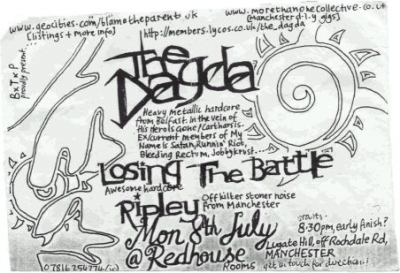 www.geocities.com/blametheparent uk
[listings + more info]
www.morethanonecollective.co.uk
[Manchester d.i.y gigs]
http://members.lycos.co.uk/the_dagda
BxTxP
proudly present...
The
Dagda
Heavy metallic hardcore
from Belfast. In the vein of
His Hero Is Gone/Catharsis.
Ex/current members of My
Name is Satan, Runnin' Riot,
Bleeding Rectum, Jobbykrust...
Losing The Battle
Awesome hardcore
Ripley
Offkilter stoner noise
from Manchester
Mon 8th July
@ Redhouse
Rooms
8:30pm, early finish?
Lugate Hill, off Rochdale Rd,
MANCHESTER
get in touch for directions!